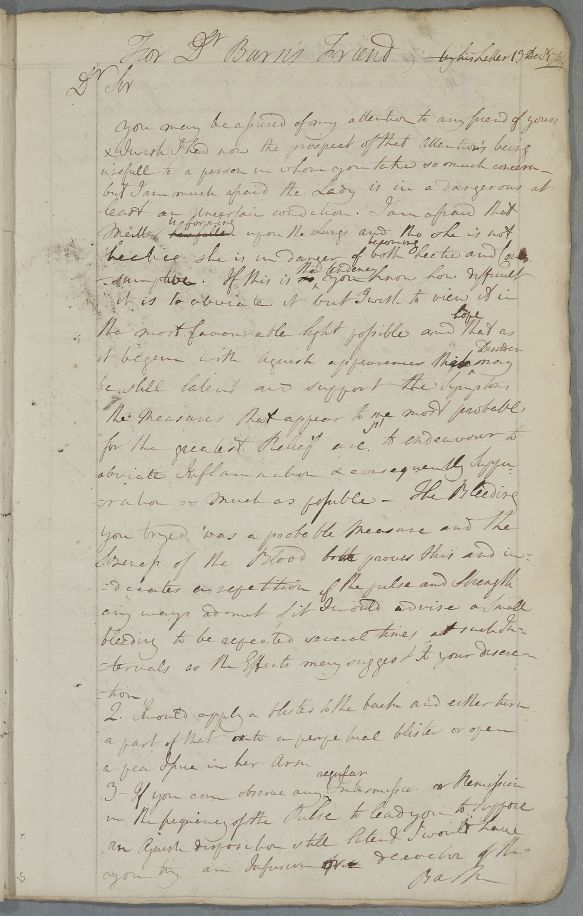 For Dr Burn's Friend by his Letter 13 Dec
Dr Sir
You may be assured of my attention to any friend of yours
& I wish I had now the prospect of that attention's being
usefull to a person in whom you take so much concern –
but I am much afraid the Lady is in a dangerous at
least an Uncertain condition. I am afraid that
Matter is forming upon the Lungs and tho she is not
hectic she is in danger of becoming both hectic and Con
-sumptive. If this is the tendency you know how difficult
it is to obviate it but I wish to view it in
the most favourable light possible and hope that as
it began with Aguish appearances that Disorder may
be still latent and support the Symptoms
the measures that appear to me most probable
for the greatest Relief are. 1st to endeavour to
obviate Inflammation & consequently Suppu-
-ration as much as possible – The Bleeding
you tryed was a probable measure and the
Sizeness of the Blood both proves this and in-
-dicates a repetition if the pulse and Strength
any ways admit of it I would advise a Small
bleeding to be repeated several times at such In-
-tervals as the Effects may suggest to your discre-
-tion
2. I would apply a blister to the back and either turn
a part of that into a perpetual blister or open
a pea Issue in her Arm
3 – If you can observe any regular Intermission or Remission
in the frequency of the Pulse to lead you to suppose
an Aguish disposition still latent I would have
you try an Infusion or a decoction of the
Bark